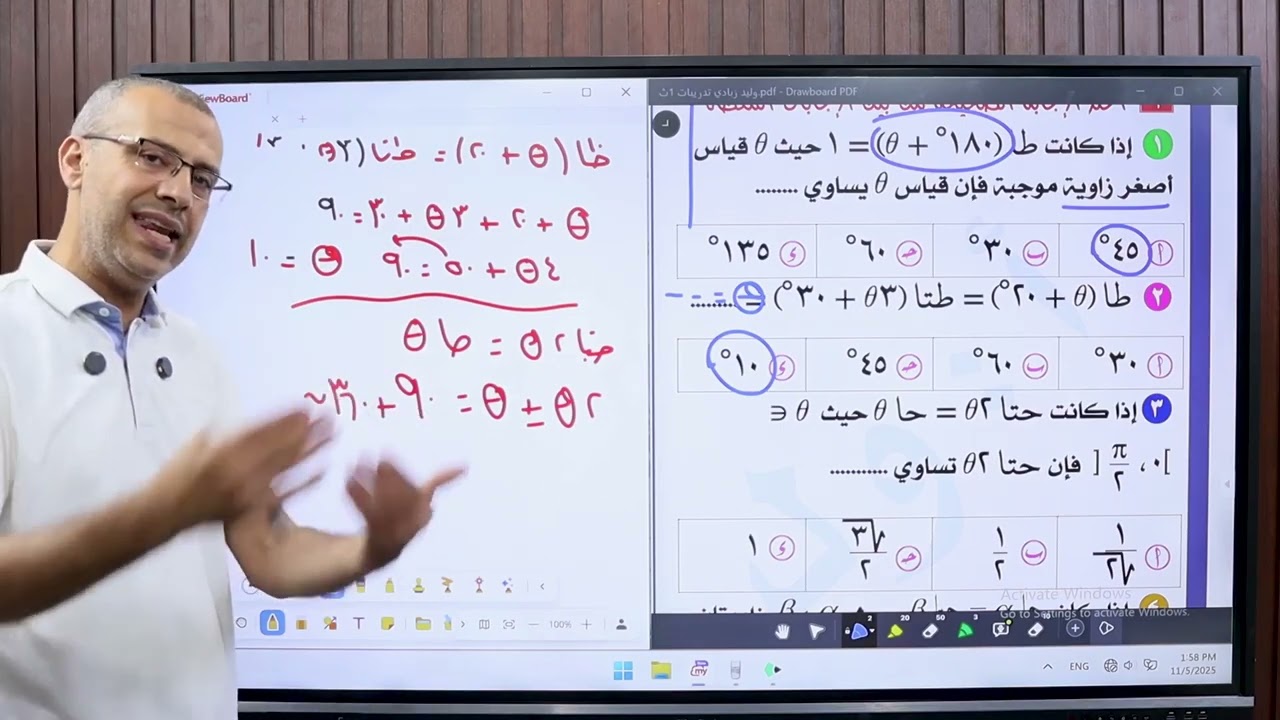 وليد زيادي تدريبات 1ث.pdf - Drawboard PDF
١ إذا كانت طا (١٨٠° + θ) = ١ حيث θ قياس
أصغر زاوية موجبة فإن قياس θ يساوي ........
أ ٤٥° ب ٣٠° حـ ٦٠° ء ١٣٥°
٢ طا (θ + ٢٠°) = طتا (٣θ + ٣٠°) ........
أ ٣٠° ب ٦٠° حـ ٤٥° ء ١٠°
٣ إذا كانت حتا ٢θ = حا θ حيث θ ∈
]٠، π/٢ [ فإن حتا ٢θ تساوي ...........
أ ١/√٢ ب ١/٢ حـ √٣/٢ ء ١
ظا (θ + ٢٠) = طتا (
θ + ٢٠ + ٣θ + ٣٠ = ٩٠
٤θ + ٥٠ = ٩٠ θ = ١٠
حتا ٢θ = حا θ
٢θ ± θ = ٩٠ + ٣٦٠ن
Activate Windows
Go to Settings to activate Windows.
100%
ENG
1:58 PM
11/5/2025